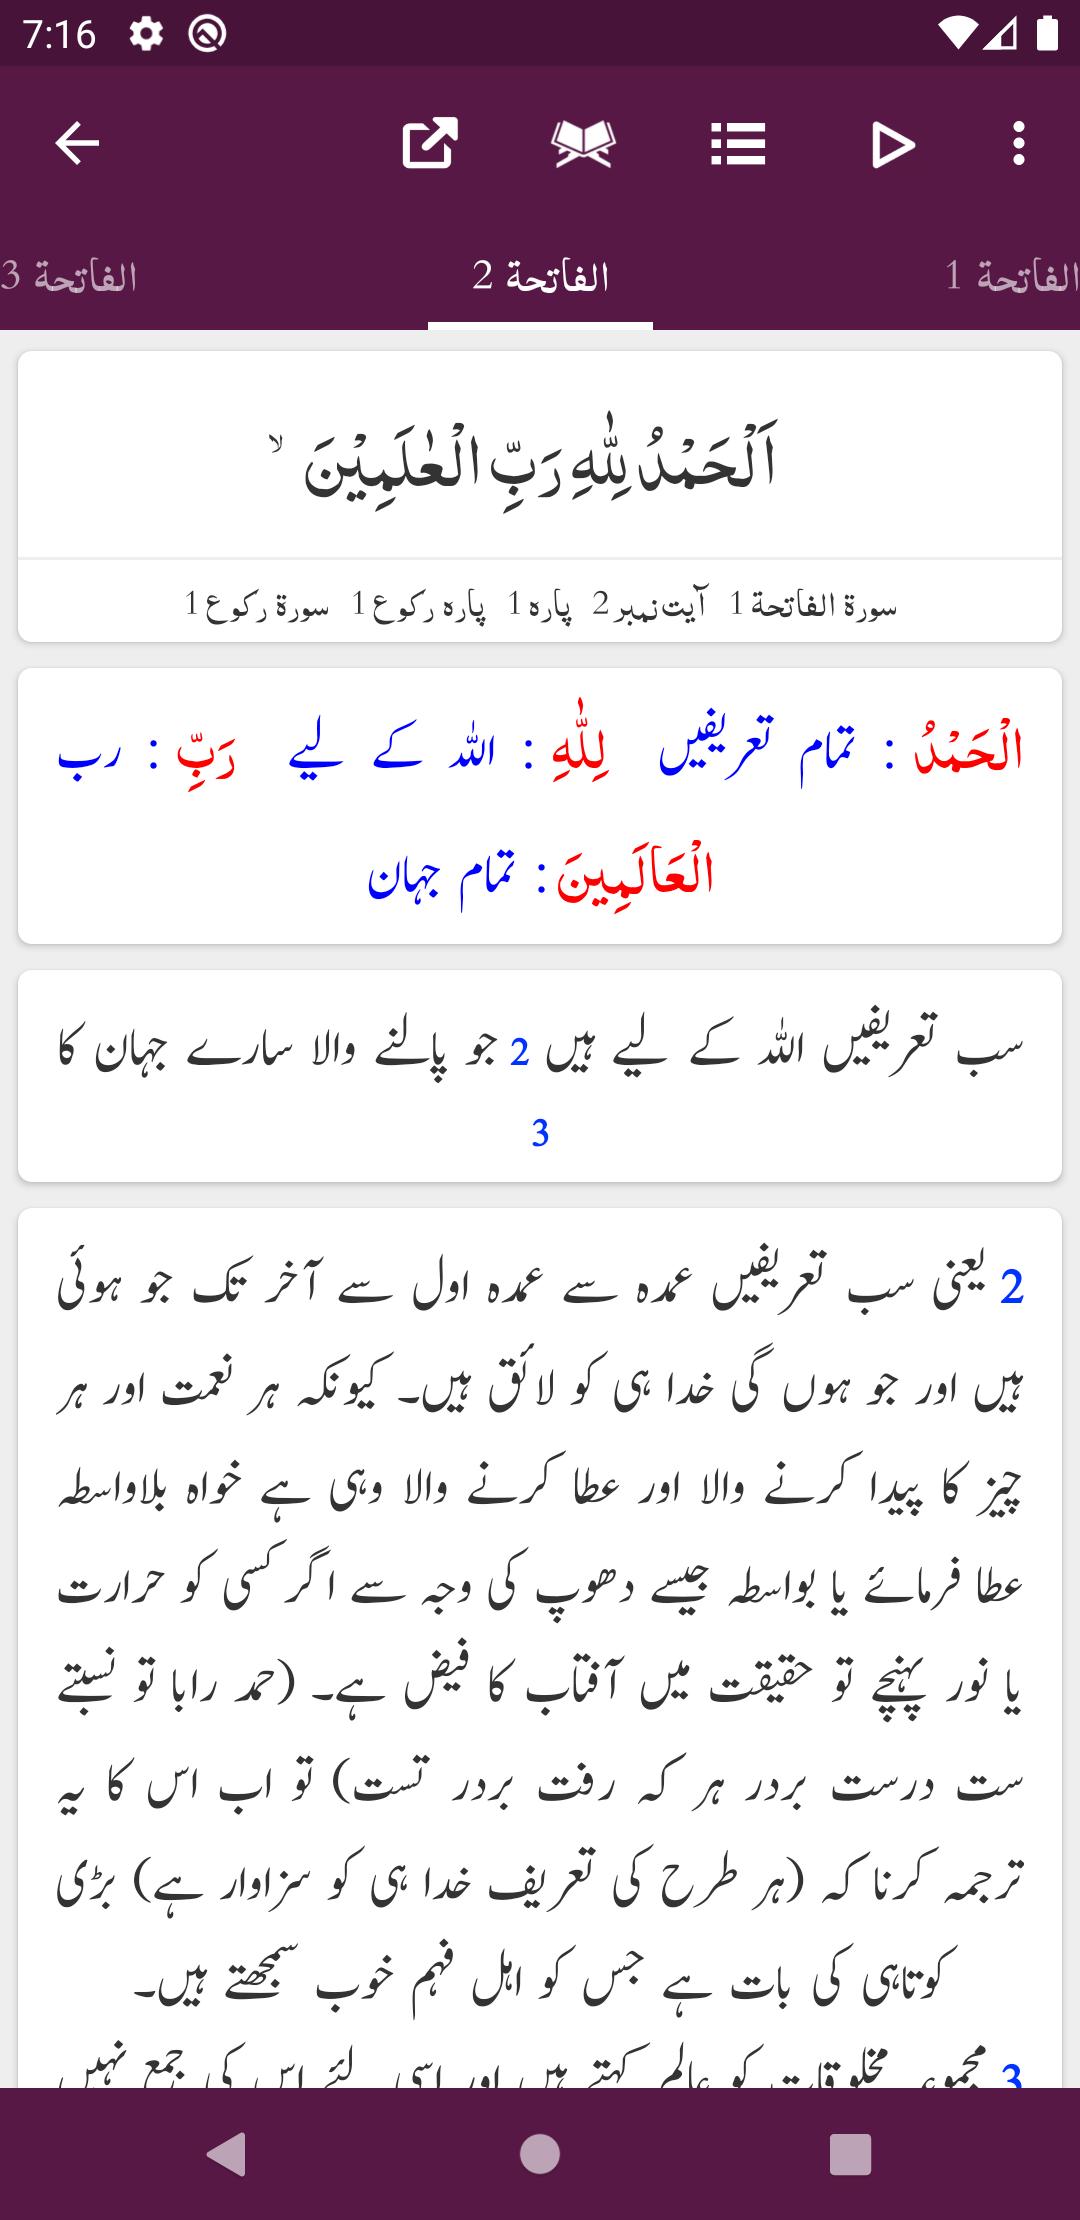 7:16
الفاتحة 1
الفاتحة 2
الفاتحة 3
اَلْحَمْدُ لِلّٰهِ رَبِّ الْعٰلَمِیْنَ ۙ
سورة الفاتحة 1 آیت نمبر 2 پارہ 1 پارہ رکوع 1 سورة رکوع 1
الْحَمْدُ : تمام تعریفیں لِلّٰهِ : اللہ کے لیے رَبِّ : رب
الْعَالَمِينَ : تمام جہان
سب تعریفیں اللہ کے لیے ہیں 2 جو پالنے والا سارے جہان کا
3
2 یعنی سب تعریفیں عمدہ سے عمدہ اول سے آخر تک جو ہوئی
ہیں اور جو ہوں گی خدا ہی کو لائق ہیں۔ کیونکہ ہر نعمت اور ہر
چیز کا پیدا کرنے والا اور عطا کرنے والا وہی ہے خواہ بلاواسطہ
عطا فرمائے یا بواسطہ جیسے دھوپ کی وجہ سے اگر کسی کو حرارت
یا نور پہنچے تو حقیقت میں آفتاب کا فیض ہے۔ (حمد رابا تو نسبتے
ست درست بردر ہر کہ رفت بردر تست) تو اب اس کا یہ
ترجمہ کرنا کہ (ہر طرح کی تعریف خدا ہی کو سزاوار ہے) بڑی
کوتاہی کی بات ہے جس کو اہل فہم خوب سمجھتے ہیں۔
3 مجموعہ مخلوقات کو عالم کہتے ہیں اور اسی لئے اس کی جمع نہیں